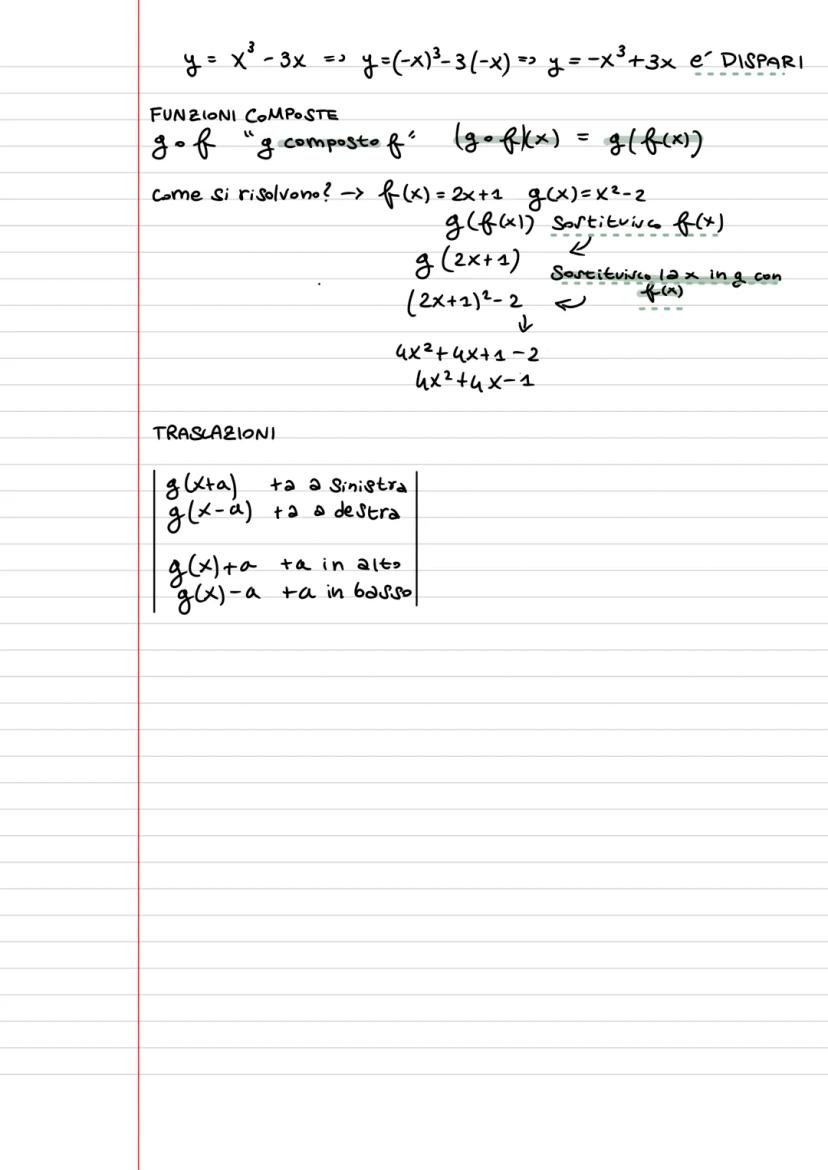 y = x³ - 3x => y=(-x)³-3(-x) => y = -x³+3x e´ DISPARI
FUNZIONI COMPOSTE
g∘f "g composto f" (g∘f)(x) = g(f(x))
Come si risolvono? → f(x) = 2x+1 g(x)=x²-2
g(f(x)) Sostituisco f(x)
g(2x+1)
Sostituisco la x in g con
f(x)
(2x+1)²-2
4x²+4x+1-2
4x²+4x-1
TRASLAZIONI
g(x+a) +a a sinistra
g(x-a) +a a destra
g(x)+a +a in alto
g(x)-a +a in basso